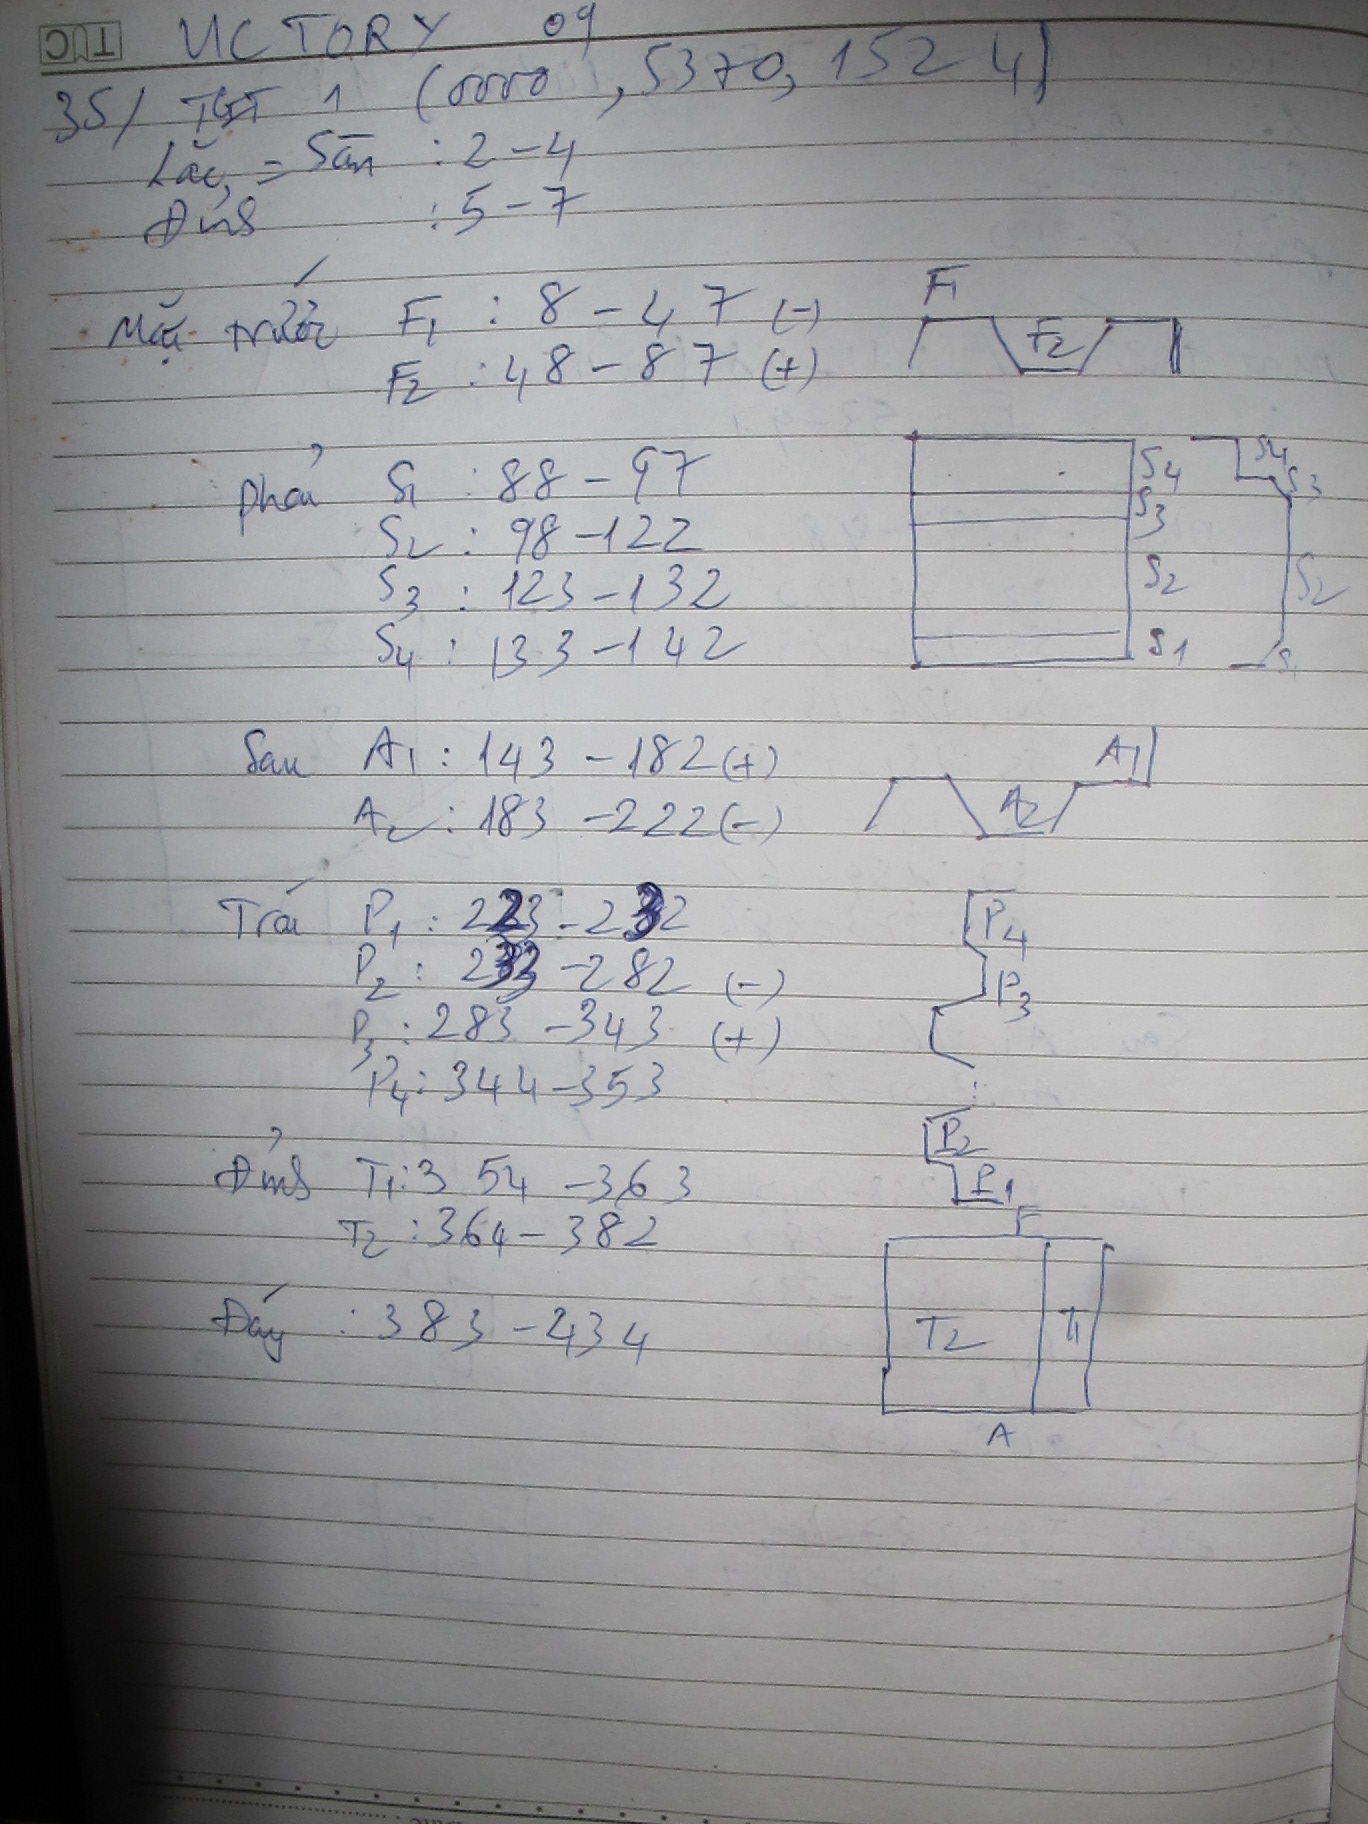 VICTORY 09
35/ TGT 1 (0000, 5370, 1524)
Lắc = Sàn : 2-4
Đỉnh : 5-7
Mặt trước F1 : 8-47 (-)
F2 : 48-87 (+)
F1
F2
Phải S1 : 88-97
S2 : 98-122
S3 : 123-132
S4 : 133-142
S4
S3
S2
S1
S4
S3
S2
S1
Sau A1 : 143-182 (+)
A2 : 183-222 (-)
A1
A2
Trái P1 : 223-232
P2 : 233-282 (-)
P3 : 283-343 (+)
P4 : 344-353
P4
P3
P2
P1
Đỉnh T1 : 354-363
T2 : 364-382
Đáy : 383-434
F
T2 T1
A